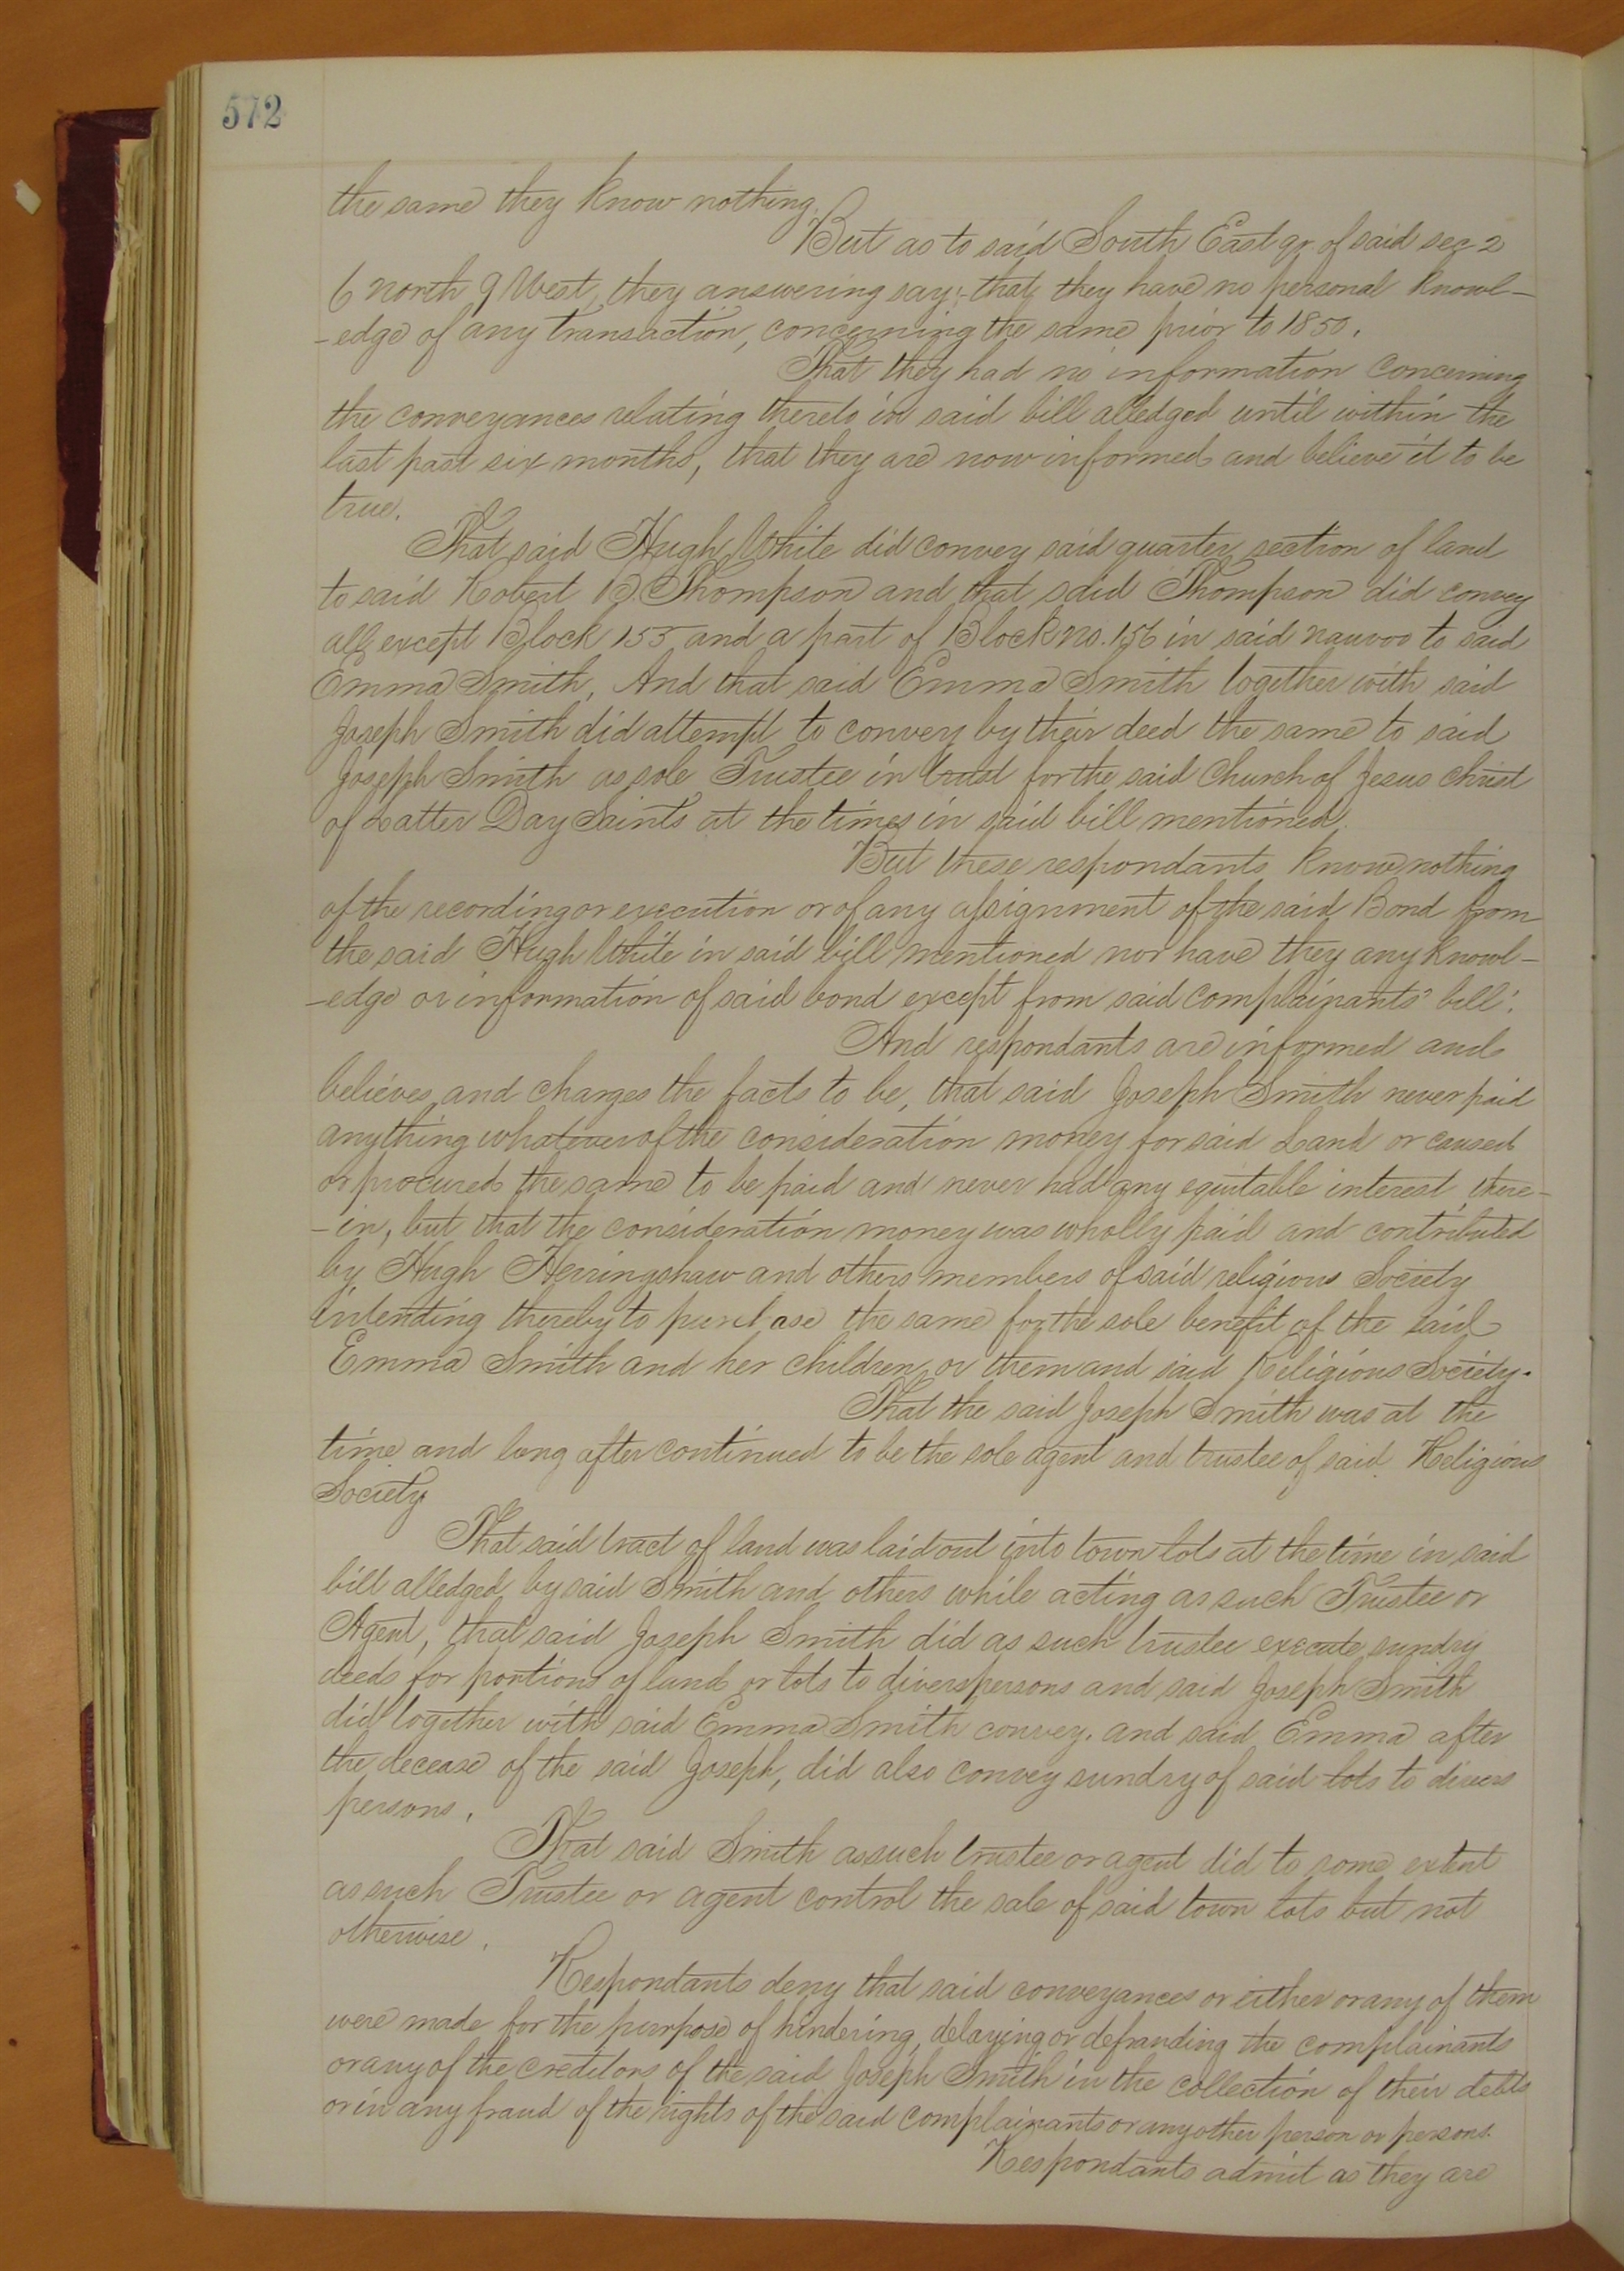 572
the same they know nothing.
But as to said South East qr. of said sec 2
6 north 9 West, they answering say:- that they have no personal knowl-
-edge of any transaction, concerning the same prior to 1850.
That they had no information concerning
the conveyances relating thereto in said bill alledged until within the
last past six months, that they are now informed and believe it to be
true.
That said Hugh White did convey said quarter section of land
to said Robert B. Thompson and that said Thompson did convey
all except Block 155 and a part of Block no. 156 in said nauvoo to said
Emma Smith, And that said Emma Smith together with said
Joseph Smith did attempt to convey by their deed the same to said
Joseph Smith as sole Trustee in trust for the said Church of Jesus Christ
of Latter Day Saints at the times in said bill mentioned.
But these respondants know nothing
of the recording or execution or of any assignment of the said Bond from
the said Hugh White in said bill mentioned nor have they any knowl-
-edge or information of said bond except from said complainants' bill.
And respondants are informed and
believes and charges the facts to be, that said Joseph Smith never paid
anything whatever of the consideration money for said Land or caused
or procured the same to be paid and never had any equitable interest there-
-in, but that the consideration money was wholly paid and contributed
by Hugh Herringshaw and others members of said religious Society
intending thereby to purchase the same for the sole benefit of the said
Emma Smith and her children or them and said Religious Society.
That the said Joseph Smith was at the
time and long after continued to be the sole agent and trustee of said Religious
Society
That said tract of land was laid out into town lots at the time in said
bill alledged by said Smith and others while acting as such Trustee or
Agent, that said Joseph Smith did as such trustee execute sundry
deeds for portions of land or lots to divers persons and said Joseph Smith
did together with said Emma Smith convey. and said Emma after
the decease of the said Joseph, did also convey sundry of said lots to divers
persons.
That said Smith as such trustee or agent did to some extent
as such Trustee or agent control the sale of said town lots but not
otherwise.
Respondants deny that said conveyances or either or any of them
were made for the purpose of hindering, delaying or defrauding the complainants
or any of the creditors of the said Joseph Smith in the collection of their debts
or in any fraud of the rights of the said complainants or any other person or persons.
Respondants admit as they are